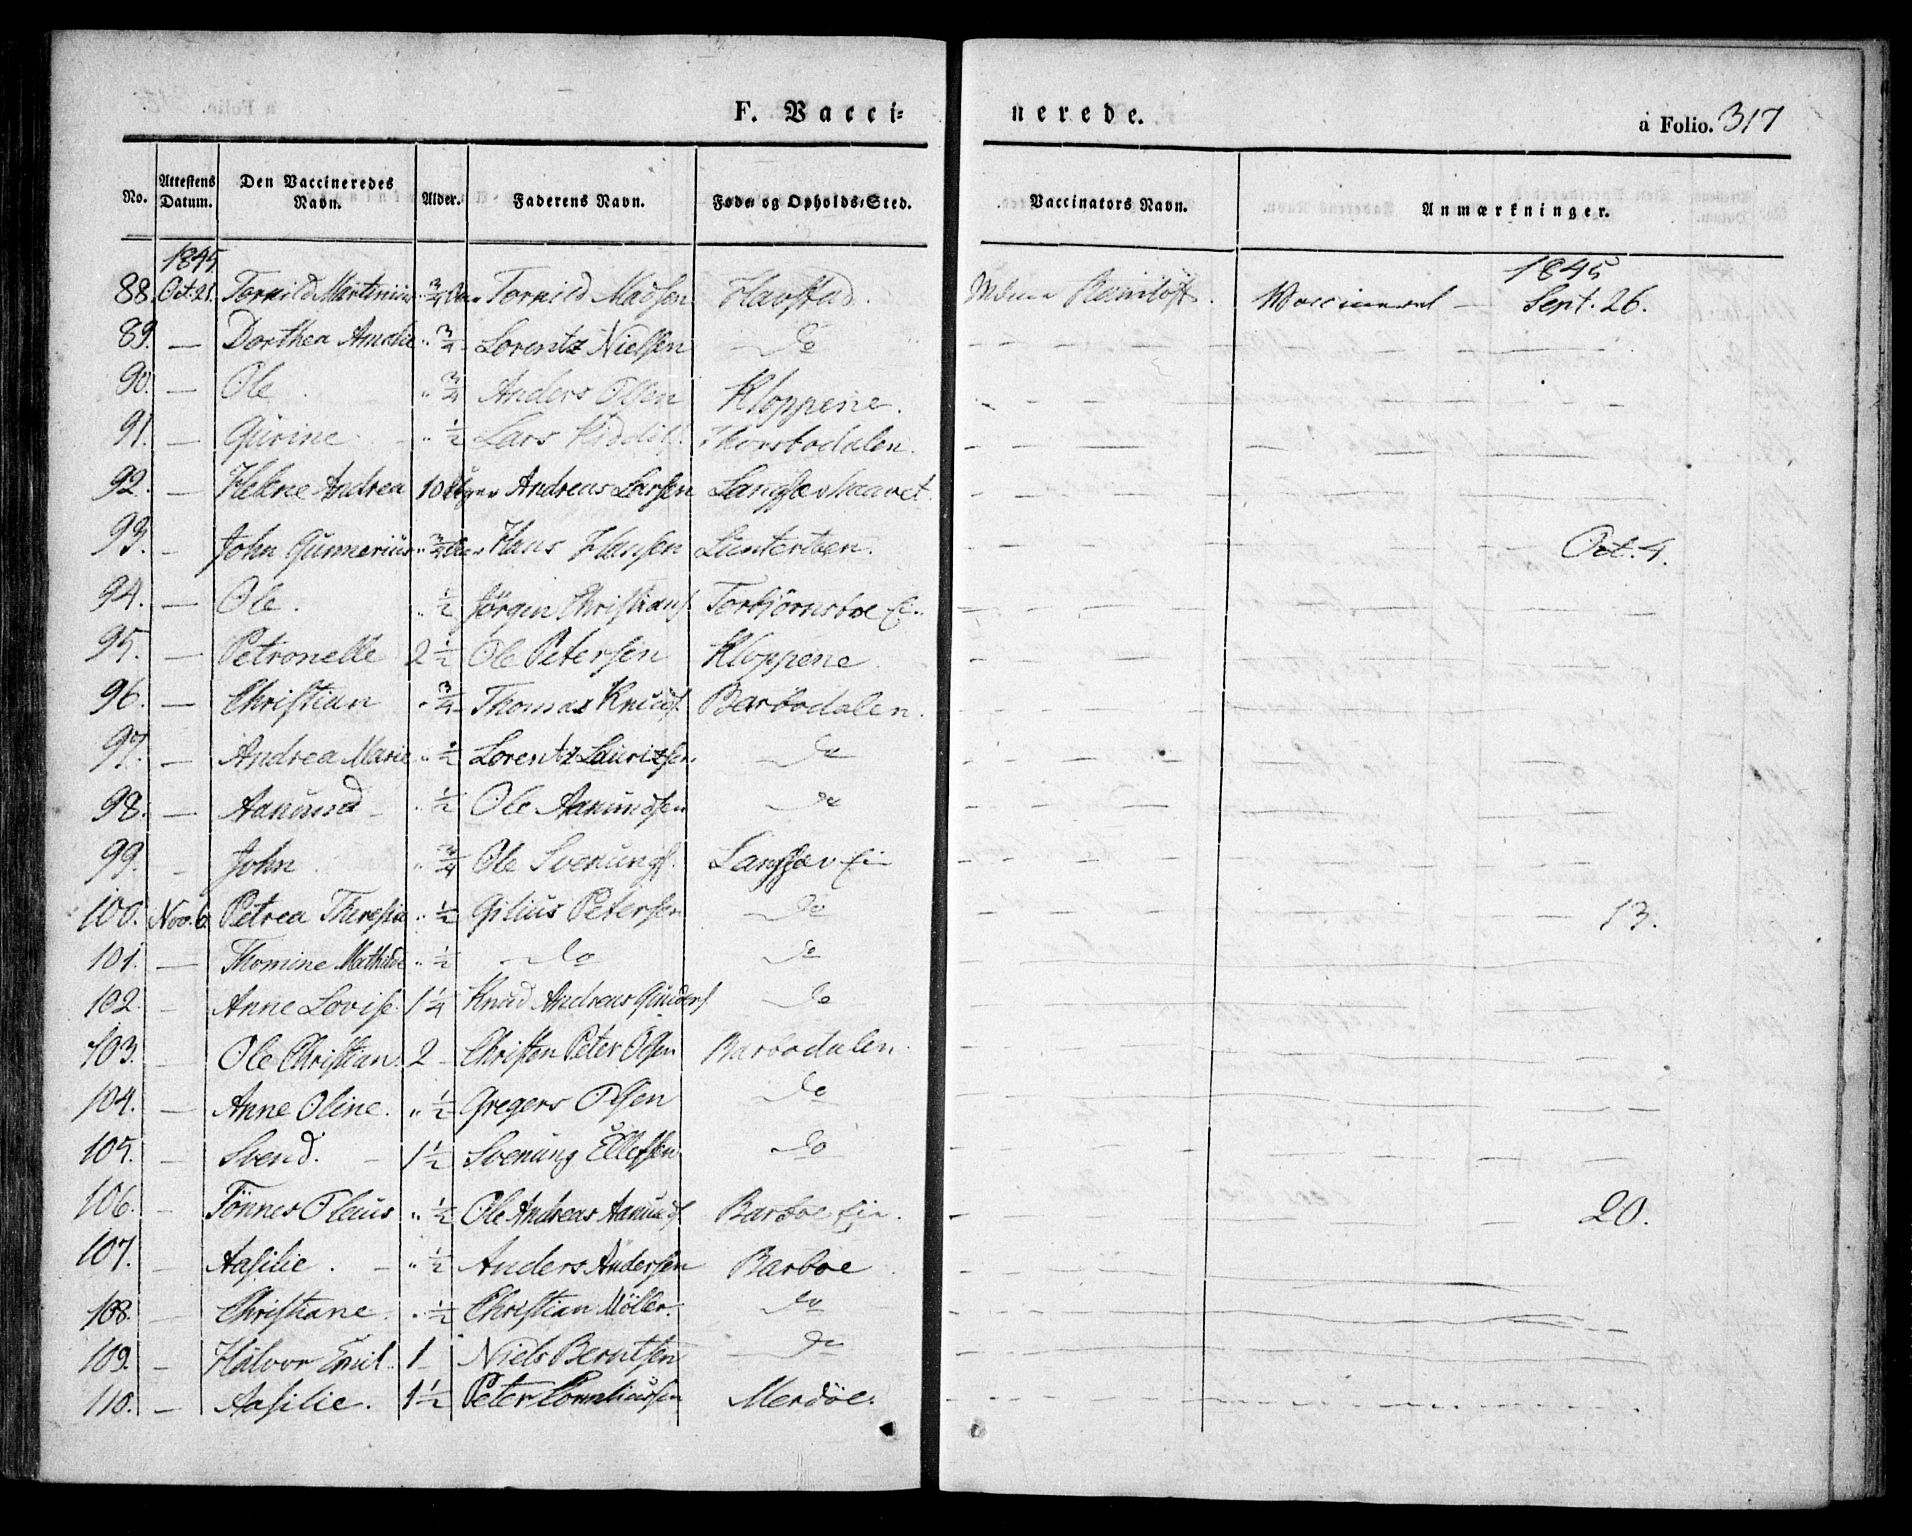 F. Vacci-
nerede.
à Folio. 317
No. Attestens Datum. Den Vaccineredes Navn. Alder. Faderens Navn. Føde og Opholds-Sted. Vaccinators Navn. Anmærkninger.
1845. 1845
88. Oct. 21. Torkild Martinius 3/4 Torkild Madsen Havstad. Vaccineret — Sept. 26.
89. — Dorthea Amalie " 3/4 Lorentz Nielsen — do — — — — —
90. — Ole " 3/4 Anders Olsen Kloppene.
91. — Gurine " 1/2 Lars
92. — Helene Andrea 10 Uger Andreas Larsen Langsævhaavet
93. — John Gunnerius " 3/4 Hans Hansen Oct. 4.
94. — Ole. " 1/2 Jörgen Christians. Torbjörnsboe Ei.
95. — Petronelle 2 1/2 Ole Petersen Kloppene
96. — Christian " 3/4 Thomas Knuds. Barbodalen.
97. — Andrea Marie " 1/2 Lorentz Lauritzsen. — do
98. — Aanund — " 1/2 Ole Aanundsen — do
99. — John " 3/4 Ole Svenungs. Langsæv Ei—
100. Nov. 6 Petrea Theresia " 1/2 Gilius Petersen — do 13.
101. — Thomine Mathilde " 1/2 — do — do
102. — Anne Lovise 1 1/4 Knud Andreas Gunders. — do
103. — Ole Christian. 2 — Christen Peter Olsen Barbodalen.
104. — Anne Oline. " 1/2 Gregers Olsen — do
105. — Svend. — 1 1/2 Svenung Ellefsen — do
106. — Tönnes Olaus " 1/2 Ole Andreas Aanunds. Barboe Ei. 20.
107. — Aasilie. — " 1/2 Anders Andersen Barboe
108. — Christiane. " 1/2 Christian Möller. do
109. — Halvor Emil. 1 — Niels Berntsen — do
110. — Aasilie. 1 1/2 Peter Corneliussen Merdöe.